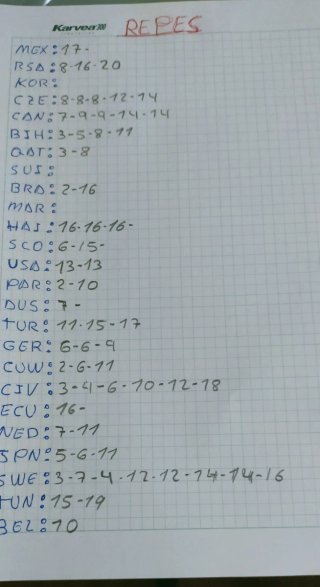 Karvea 300
REPES
MEX: 17-
RSA: 8-16-20
KOR:
CZE: 8-8-8-12-14
CAN: 7-9-9-14-14
BIH: 3-5-8-11
QAT: 3-8
SUI:
BRA: 2-16
MAR:
HAI: 16-16-16-
SCO: 6-15-
USA: 13-13
PAR: 2-10
AUS: 7-
TUR: 11-15-17
GER: 6-6-9
CUW: 2-6-11
CIV: 3-4-6-10-12-18
ECU: 16-
NED: 7-11
JPN: 5-6-11
SWE: 3-7-4-12-12-14-14-16
TUN: 15-19
BEL: 10